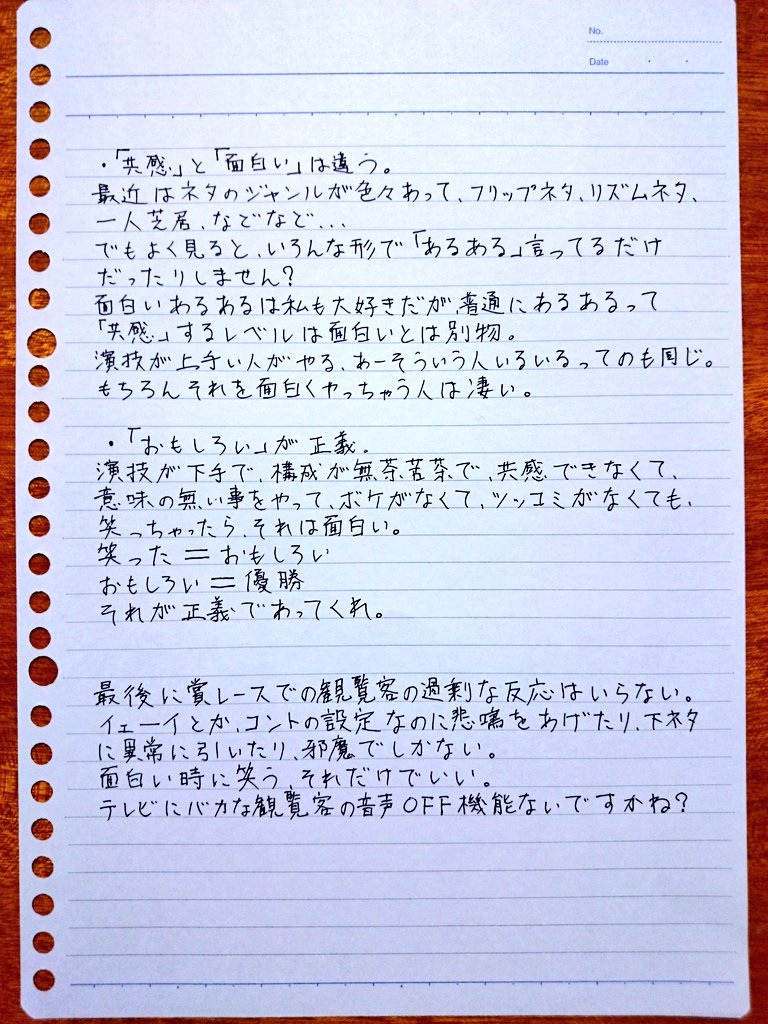 No.
Date
・「共感」と「面白い」は違う。
最近はネタのジャンルが色々あって、フリップネタ、リズムネタ、
一人芝居、などなど...
でもよく見ると、いろんな形で「あるある」言ってるだけ
だったりしません?
面白いあるあるは私も大好きだが、普通にあるあるって
「共感」するレベルは面白いとは別物。
演技が上手い人がやる、あーそういう人いるいるってのも同じ。
もちろんそれを面白くやっちゃう人は凄い。
・「おもしろい」が正義.
演技が下手で、構成が無茶苦茶で、共感できなくて、
意味の無い事をやって、ボケがなくて、ツッコミがなくても、
笑っちゃったら、それは面白い。
笑った＝おもしろい
おもしろい＝優勝
それが正義であってくれ。
最後に賞レースでの観覧客の過剰な反応はいらない。
イェーイとか、コントの設定なのに悲鳴をあげたり、下ネタ
に異常に引いたり、邪魔でしかない。
面白い時に笑う、それだけでいい。
テレビにバカな観覧客の音声OFF機能ないですかね?